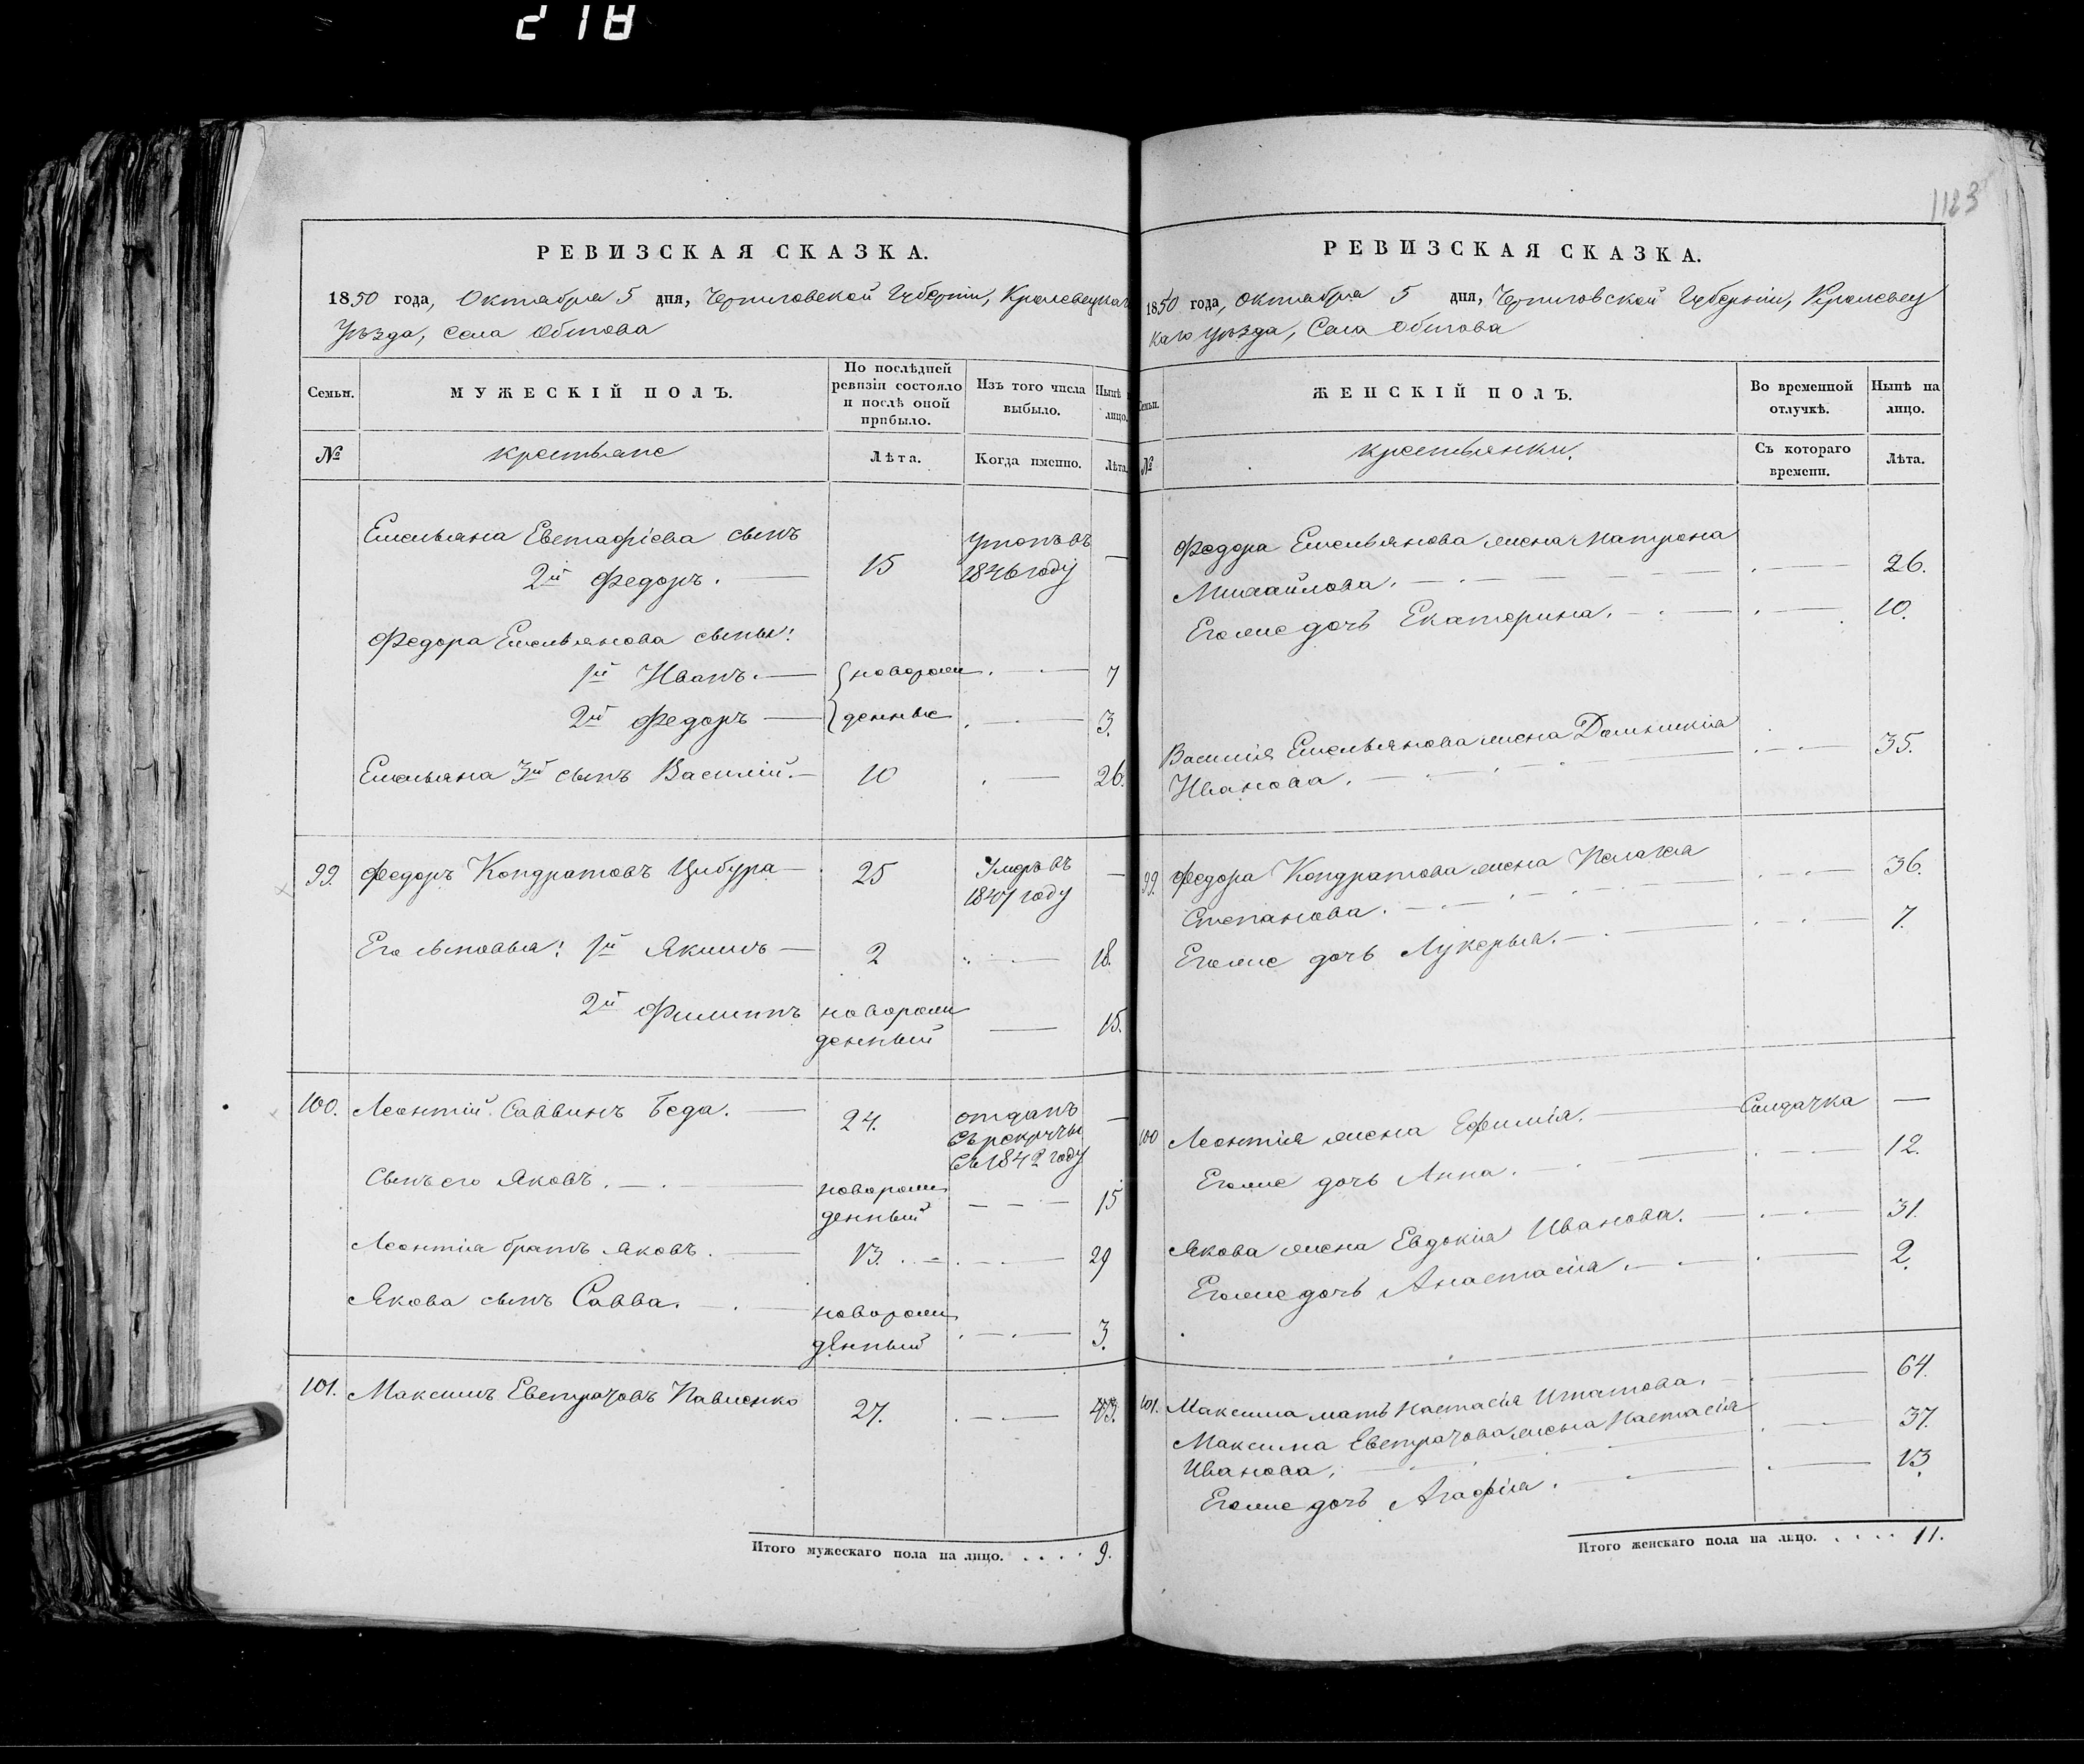 218
РЕВИЗСКАЯ СКАЗКА.
1850 года, Октября 5 дня, Черниговской Губерніи, Кролевецкаго
Уѣзда, Села Обтова
Семьи.
МУЖЕСКІЙ ПОЛЪ.
По послѣдней
ревизіи состояло
и послѣ оной
прибыло.
Изъ того числа
выбыло.
Нынѣ н
лицо.
№
крестьяне
Лѣта.
Когда именно.
Лѣта.
Емельяна Евстафіева сынъ
2й Федоръ. 15 Утопъ въ 1846 году —
Федора Емельянова сыны:
1й Иванъ. новорож 7
2й Федоръ денные 3.
Емельяна 3й сынъ Василій. 10 26.
99. Федоръ Кондратовъ Цибура 25 Умеръ въ —
1847 году
Его сыновья: 1й Якимъ 2 18.
2й Филиппъ новорож
денный 15.
100. Леонтій Саввинъ Беда. 24. отданъ —
въ рекруты
въ 1842 году
Сынъ его Яковъ. новорож
денный 15
Леонтія братъ Яковъ. 13. 29
Якова сынъ Савва. новорож
денный 3.
101. Максимъ Евстратовъ Павленко 27. 43.
Итого мужескаго пола на лицо. . . . . 9.
1123
РЕВИЗСКАЯ СКАЗКА.
1850 года, Октября 5 дня, Черниговской Губерніи, Кролевец
каго Уѣзда, Села Обтова
Семьи.
ЖЕНСКІЙ ПОЛЪ.
Во временной
отлучкѣ.
Нынѣ на
лицо.
№
крестьянки.
Съ котораго
времени.
Лѣта.
Федора Емельянова жена Матрона
Михайлова. 26.
Его же дочь Екатерина. 10.
Василія Емельянова жена Домникія
Иванова. 35.
99. Федора Кондратова жена Пелагея 36.
Степанова.
Его же дочь Лукерья. 7.
100 Леонтія жена Ефимія. Солдачка —
Его же дочь Анна. 12.
Якова жена Евдокія Иванова. 31.
Его же дочь Анастасія. 2.
101. Максима мать Настасія Игнатова. 64.
Максима Евстратова жена Настасія 37.
Иванова.
Его же дочь Агафія. 13
Итого женскаго пола на лицо. . . . . 11.